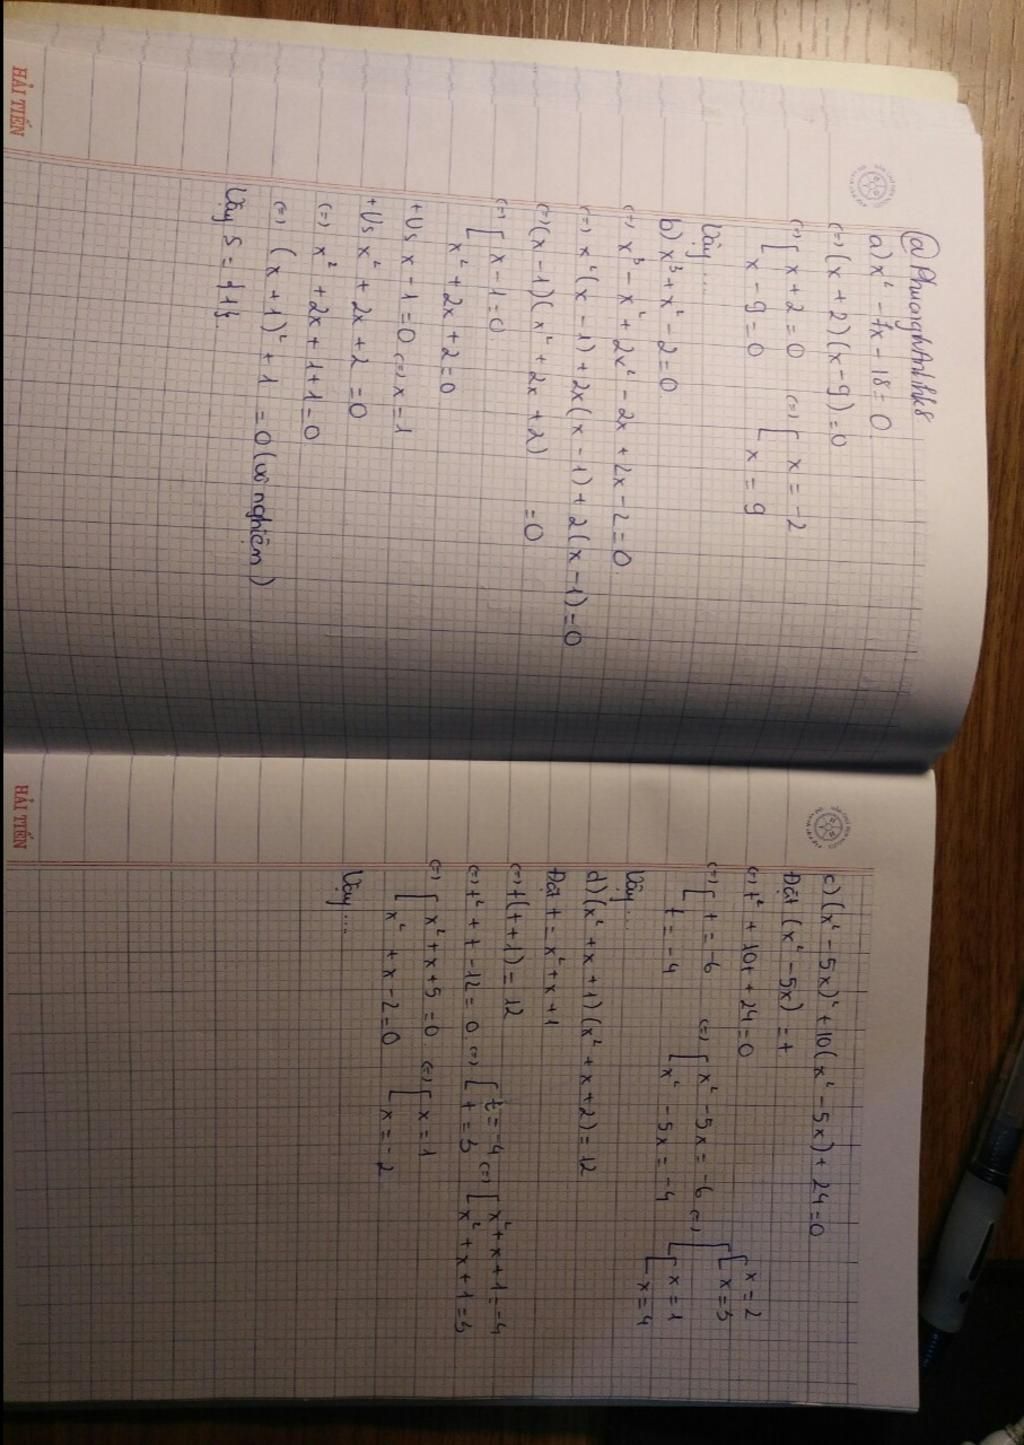 @PhuonghAnhhk8
a) x² - 7x - 18 = 0
(=) (x + 2)(x - 9) = 0
(=) [ x + 2 = 0 (=) [ x = -2
[ x - 9 = 0 [ x = 9
Vậy....
b) x³ + x² - 2 = 0
(=) x³ - x² + 2x² - 2x + 2x - 2 = 0
(=) x²(x - 1) + 2x(x - 1) + 2(x - 1) = 0
(=) (x - 1)(x² + 2x + 2) = 0
(=) [ x - 1 = 0
x² + 2x + 2 = 0
+ Vs x - 1 = 0 (=) x = 1
+ Vs x² + 2x + 2 = 0
(=) x² + 2x + 1 + 1 = 0
(=) (x + 1)² + 1 = 0 (vô nghiệm)
Vậy S = {1}.
HẢI TIẾN
c) (x² - 5x)² + 10(x² - 5x) + 24 = 0
Đặt (x² - 5x) = t
(=) t² + 10t + 24 = 0
(=) [ t = -6 (=) [ x² - 5x = -6 (=) [ [ x = 2
x = 3
t = -4 [ x² - 5x = -4 [ x = 1
x = 4
Vậy...
d) (x² + x + 1)(x² + x + 2) = 12
Đặt t = x² + x + 1
(=) t(t + 1) = 12
(=) t² + t - 12 = 0 (=) [ t = -4 (=) [ x² + x + 1 = -4
t = 3 x² + x + 1 = 3
(=) [ x² + x + 5 = 0 (=) [ x = 1
x² + x - 2 = 0 [ x = -2
Vậy....
HẢI TIẾN